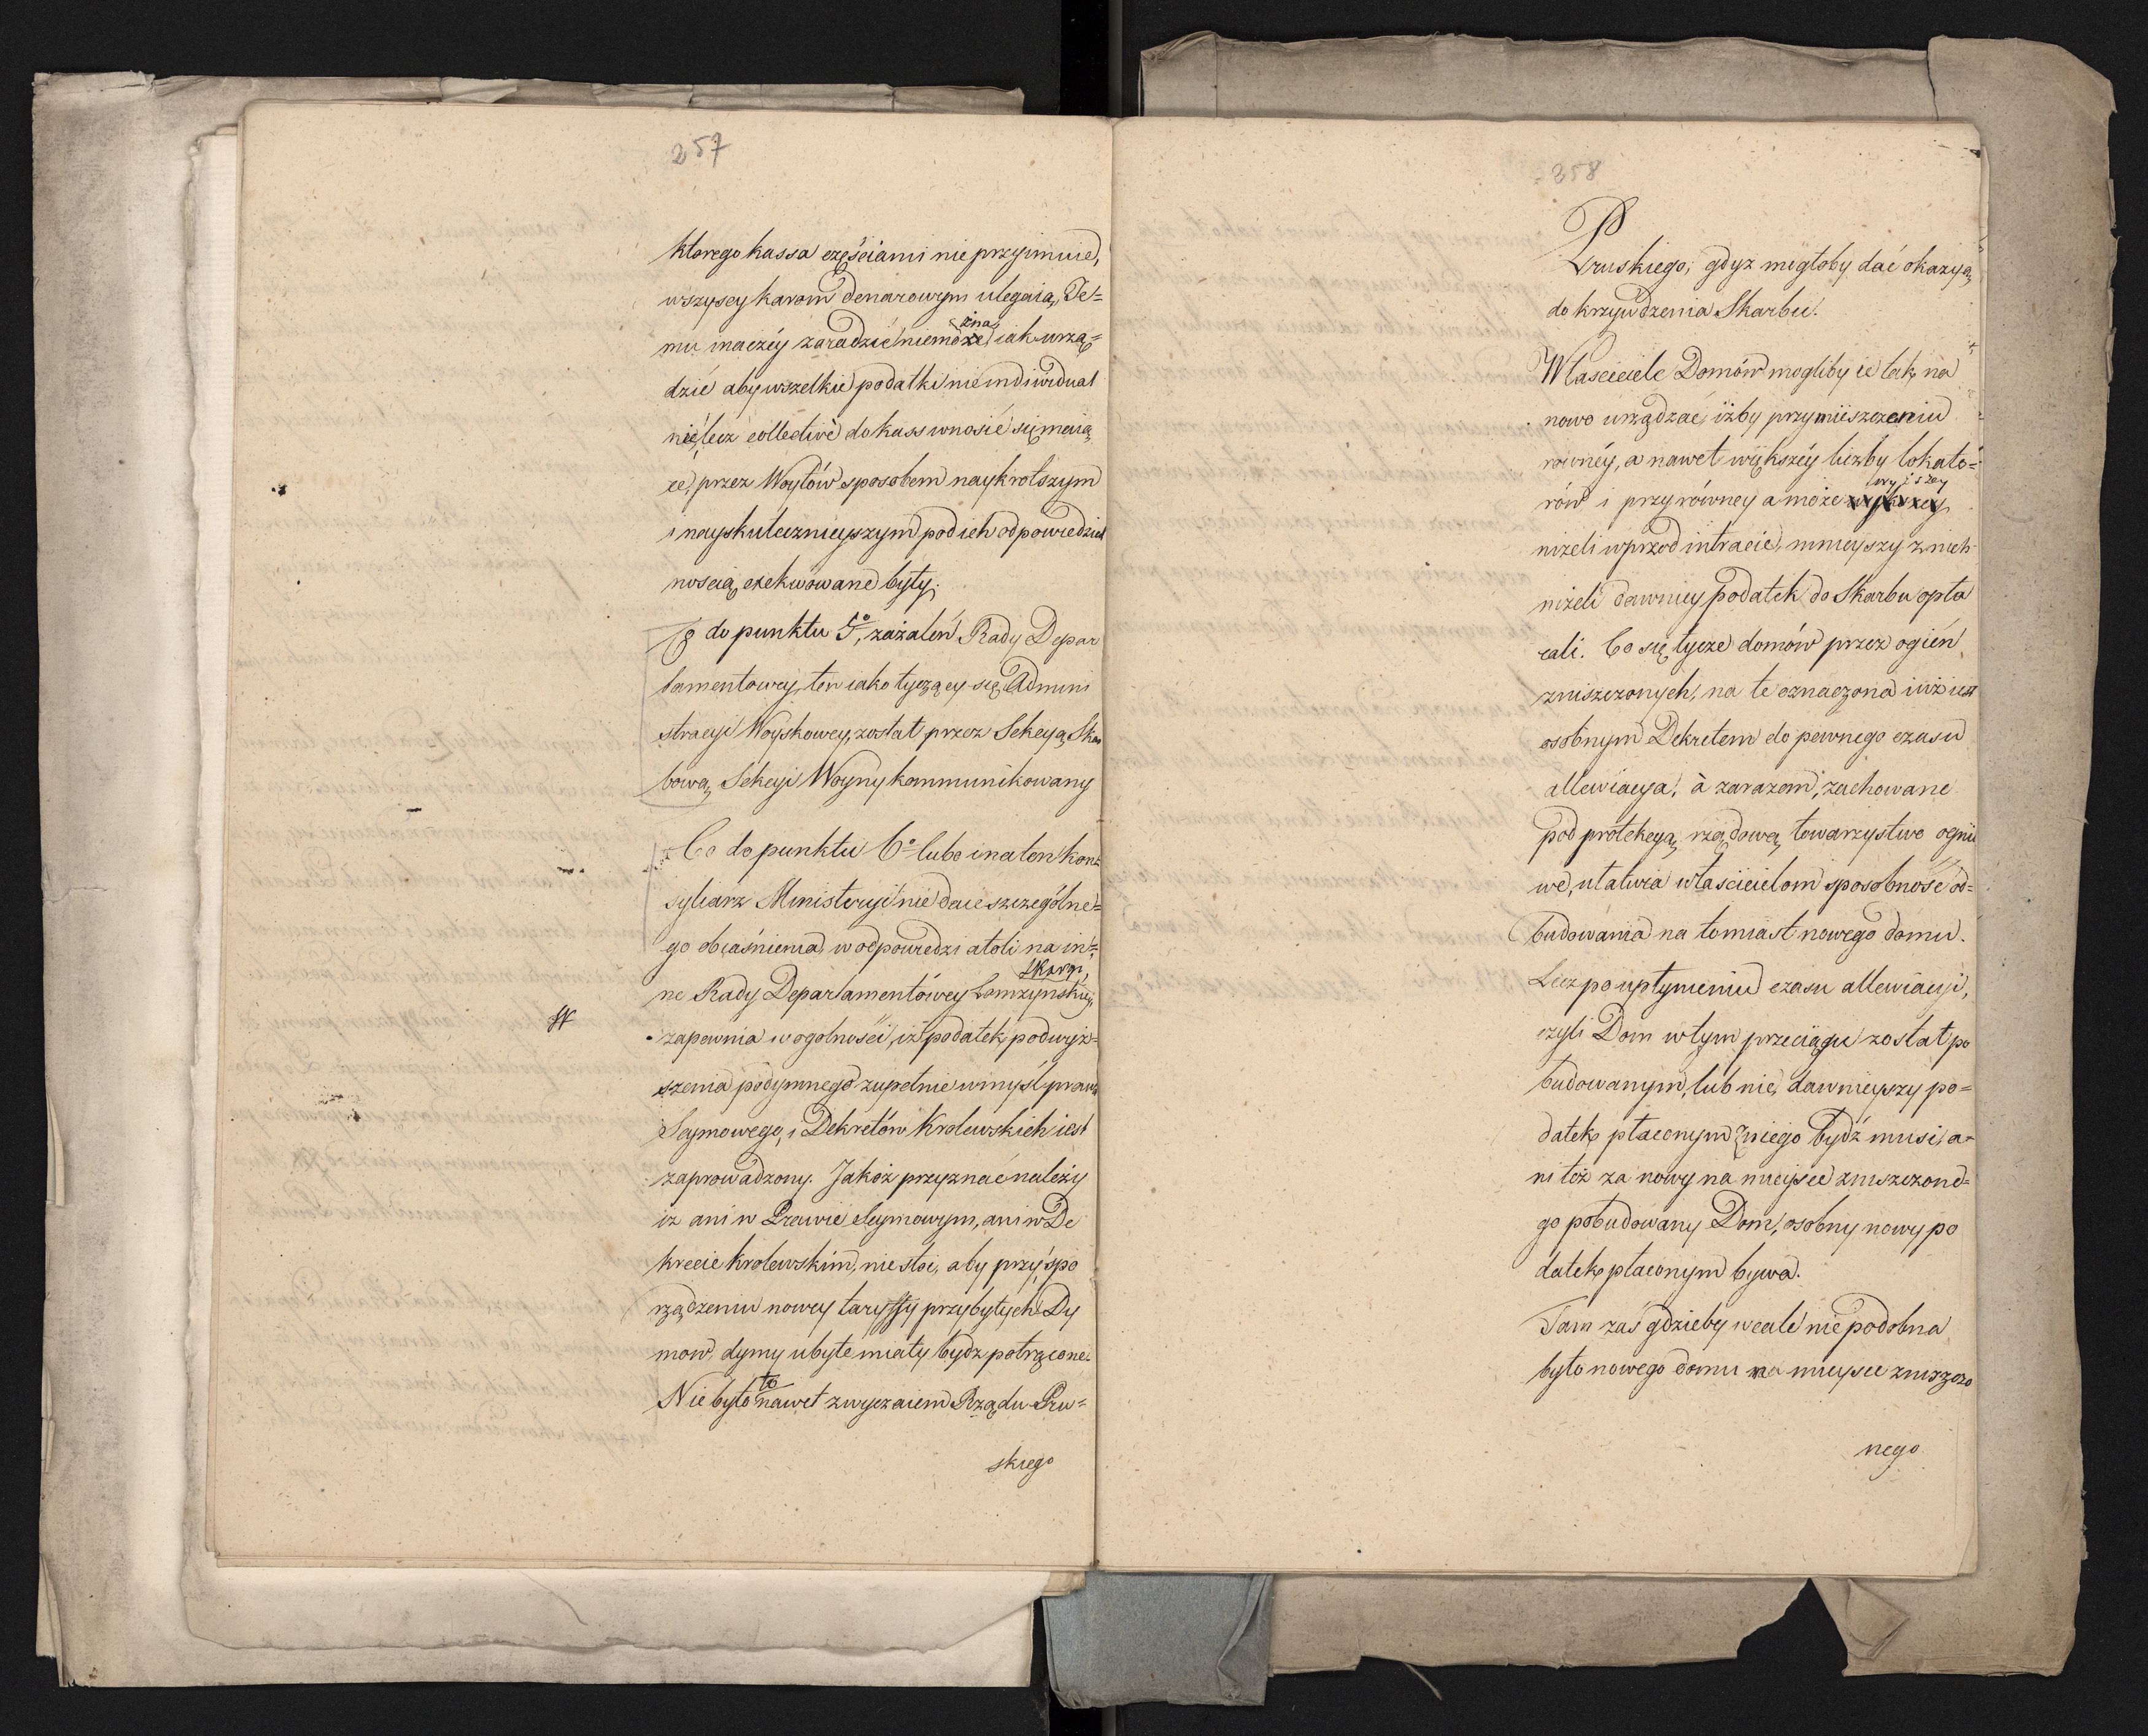 257
ktorego kassa częściami nie przyimuie,
wszyscy karom denarowym ulegaią, Te=
mu inaczéy zaradzić niemożna iak urzą=
dzić aby wszelkie podatki nie individual
nie, lecz collective do kass wnosić się maią
ce, przez Woytów sposobem naykrotszym
i nayskutecznieyszym pod ich odpowiedzial
noscią exekwowane były.
do punktu 5o, zażaleń Rady Depar
tamentowey, ten iako tyczący się Admini
stracyi Woyskowey, został przez Sekcyą Skar
bową Sekcyi Woyny kommunikowany
Co do punktu 6o lubo i na ten kon
syliarz Ministeryi nie daie szczególne=
go obiaśnienia, w odpowiedzi atoli na in=
ne skargi
Rady Departamentówey Łomzynskiey,
zapewnia w ogolności, iż podatek podwyż=
szenia podymnego zupełnie w myśl prawa
Seymowego, i Dekretów Krolewskich iest
zaprowadzony. Jakoż przyznać należy
iz ani w Prawie Seymowym, ani w De
krecie krolewskim, nie stoi, aby przy spo
rządzeniu nowey taryffy przybyłych Dy
mow, dymy ubyłe miały bydz potrącone.
Nie było to nawet zwyczaiem Rządu Pru=
skiego
258
Pruskiego, gdyz mógłoby dać okazyą
do krzywdzenia Skarbu.
Własciciele Domów mogliby ie tak na
nowo urządzać, iżby przy mieszczeniu
równéy, a nawet większéy liczby lokato=
rów i przy równey a może wyższey
niżeli wprzod intracie, mnieyszy z nich
niżeli dawniey podatek do Skarbu opła
cali. Co się tycze domów przez ogień
zniszczonych, na te oznaczona iuż iest
osobnym Dekretem do pewnego czasu
allewiacya, à zarazem, zachowane
pod protekcyą rządową towarzystwo ognio
we, ułatwia właścicielom sposobność od=
budowania na tomiast nowego domu.
Lecz po upłynieniu czasu allewiacyi,
czyli Dom w tym przeciągu został po
budowanym, lub nie, dawnieyszy po=
datek płaconym z niego bydź musi, a=
ni też za nowy na mieysce zniszczone=
go pobudowany Dom, osobny nowy po
datek płaconym bywa.
Tam zaś gdzieby wcale nie podobna
było nowego domu na mieysce zniszczo
nego